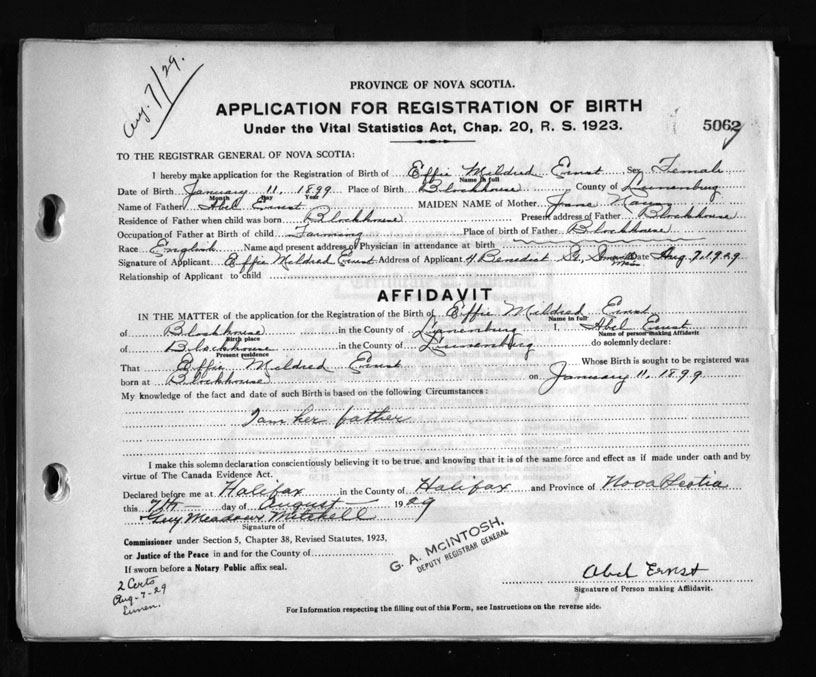 Aug. 7/29.
PROVINCE OF NOVA SCOTIA.
APPLICATION FOR REGISTRATION OF BIRTH
Under the Vital Statistics Act, Chap. 20, R. S. 1923.
5062
TO THE REGISTRAR GENERAL OF NOVA SCOTIA:
I hereby make application for the Registration of Birth of Effie Mildred Ernst Sex Female
Name in full
Date of Birth January 11, 1899 Place of Birth Blockhouse County of Lunenburg
Month Day Year
Name of Father Abel Ernst MAIDEN NAME of Mother Jane
Residence of Father when child was born Blockhouse Present address of Father Blockhouse
Occupation of Father at Birth of child Farming Place of birth of Father Blockhouse
Race English Name and present address of Physician in attendance at birth
Signature of Applicant Effie Mildred Ernst Address of Applicant 4 Benedict St. Date Aug 7, 1929
Relationship of Applicant to child
AFFIDAVIT
IN THE MATTER of the application for the Registration of Birth of Effie Mildred Ernst
Name in full
of Blockhouse in the County of Lunenburg I, Abel Ernst
Birth place Name of person making Affidavit
of Blockhouse in the County of Lunenburg do solemnly declare:
Present residence
That Effie Mildred Ernst Whose Birth is sought to be registered was
born at Blockhouse on January 11, 1899.
My knowledge of the fact and date of such Birth is based on the following Circumstances:
I am her father
I make this solemn declaration conscientiously believing it to be true, and knowing that it is of the same force and effect as if made under oath and by
virtue of The Canada Evidence Act.
Declared before me at Halifax in the County of Halifax and Province of Nova Scotia
this 7th day of August 1929
Guy Meadows Mitchell
Signature of
Commissioner under Section 5, Chapter 38, Revised Statutes, 1923,
or Justice of the Peace in and for the County of
If sworn before a Notary Public affix seal.
G. A. McINTOSH,
DEPUTY REGISTRAR GENERAL
2 Certs
Aug-7-29
Lunen.
Abel Ernst
Signature of Person making Affidavit.
For Information respecting the filling out of this Form, see Instructions on the reverse side.